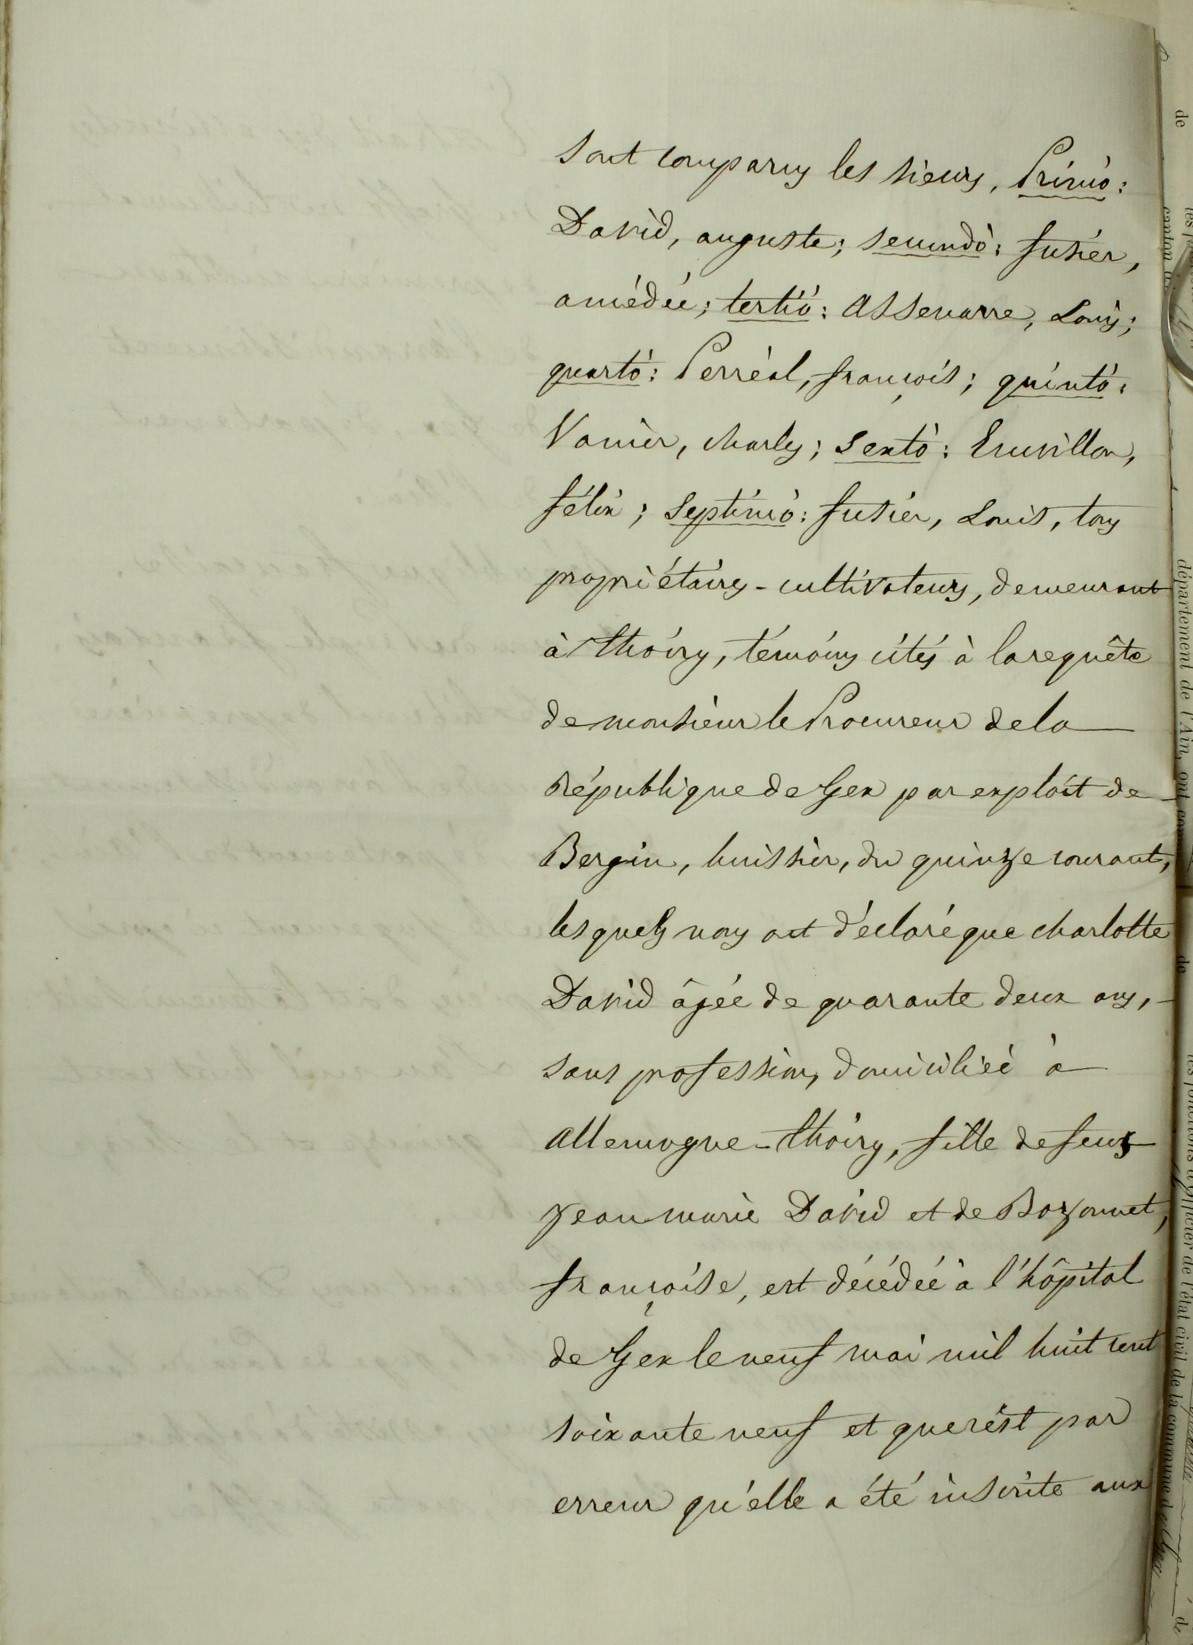 sont comparus les sieurs, Primò:
David, auguste; secundò: fusier,
amédée; tertiò: Assenarre, Louis;
quartò: Perréal, françois; quintò:
Vanier, charles; sextò: Cruvillon,
félix; septimò: fusier, Louis, tous
propriétaires-cultivateurs, demeurant
à Thoiry, témoins cités à la requête
de monsieur le Procureur de la
République de Gex par exploit de
Bergin, huissier, du quinze courant,
lesquels nous ont déclaré que charlotte
David âgée de quarante deux ans,
sans profession, domiciliée à
Allemogne-Thoiry, fille de feus
jean marie David et de Bozonnet,
françoise, est décédée à l'hôpital
de Gex le neuf mai mil huit cent
soixante neuf et que c'est par
erreur qu'elle a été inscrite aux
de
canton de
département de l'Ain, ont
de
les fonctions d'officier de l'état civil de la commune d
de